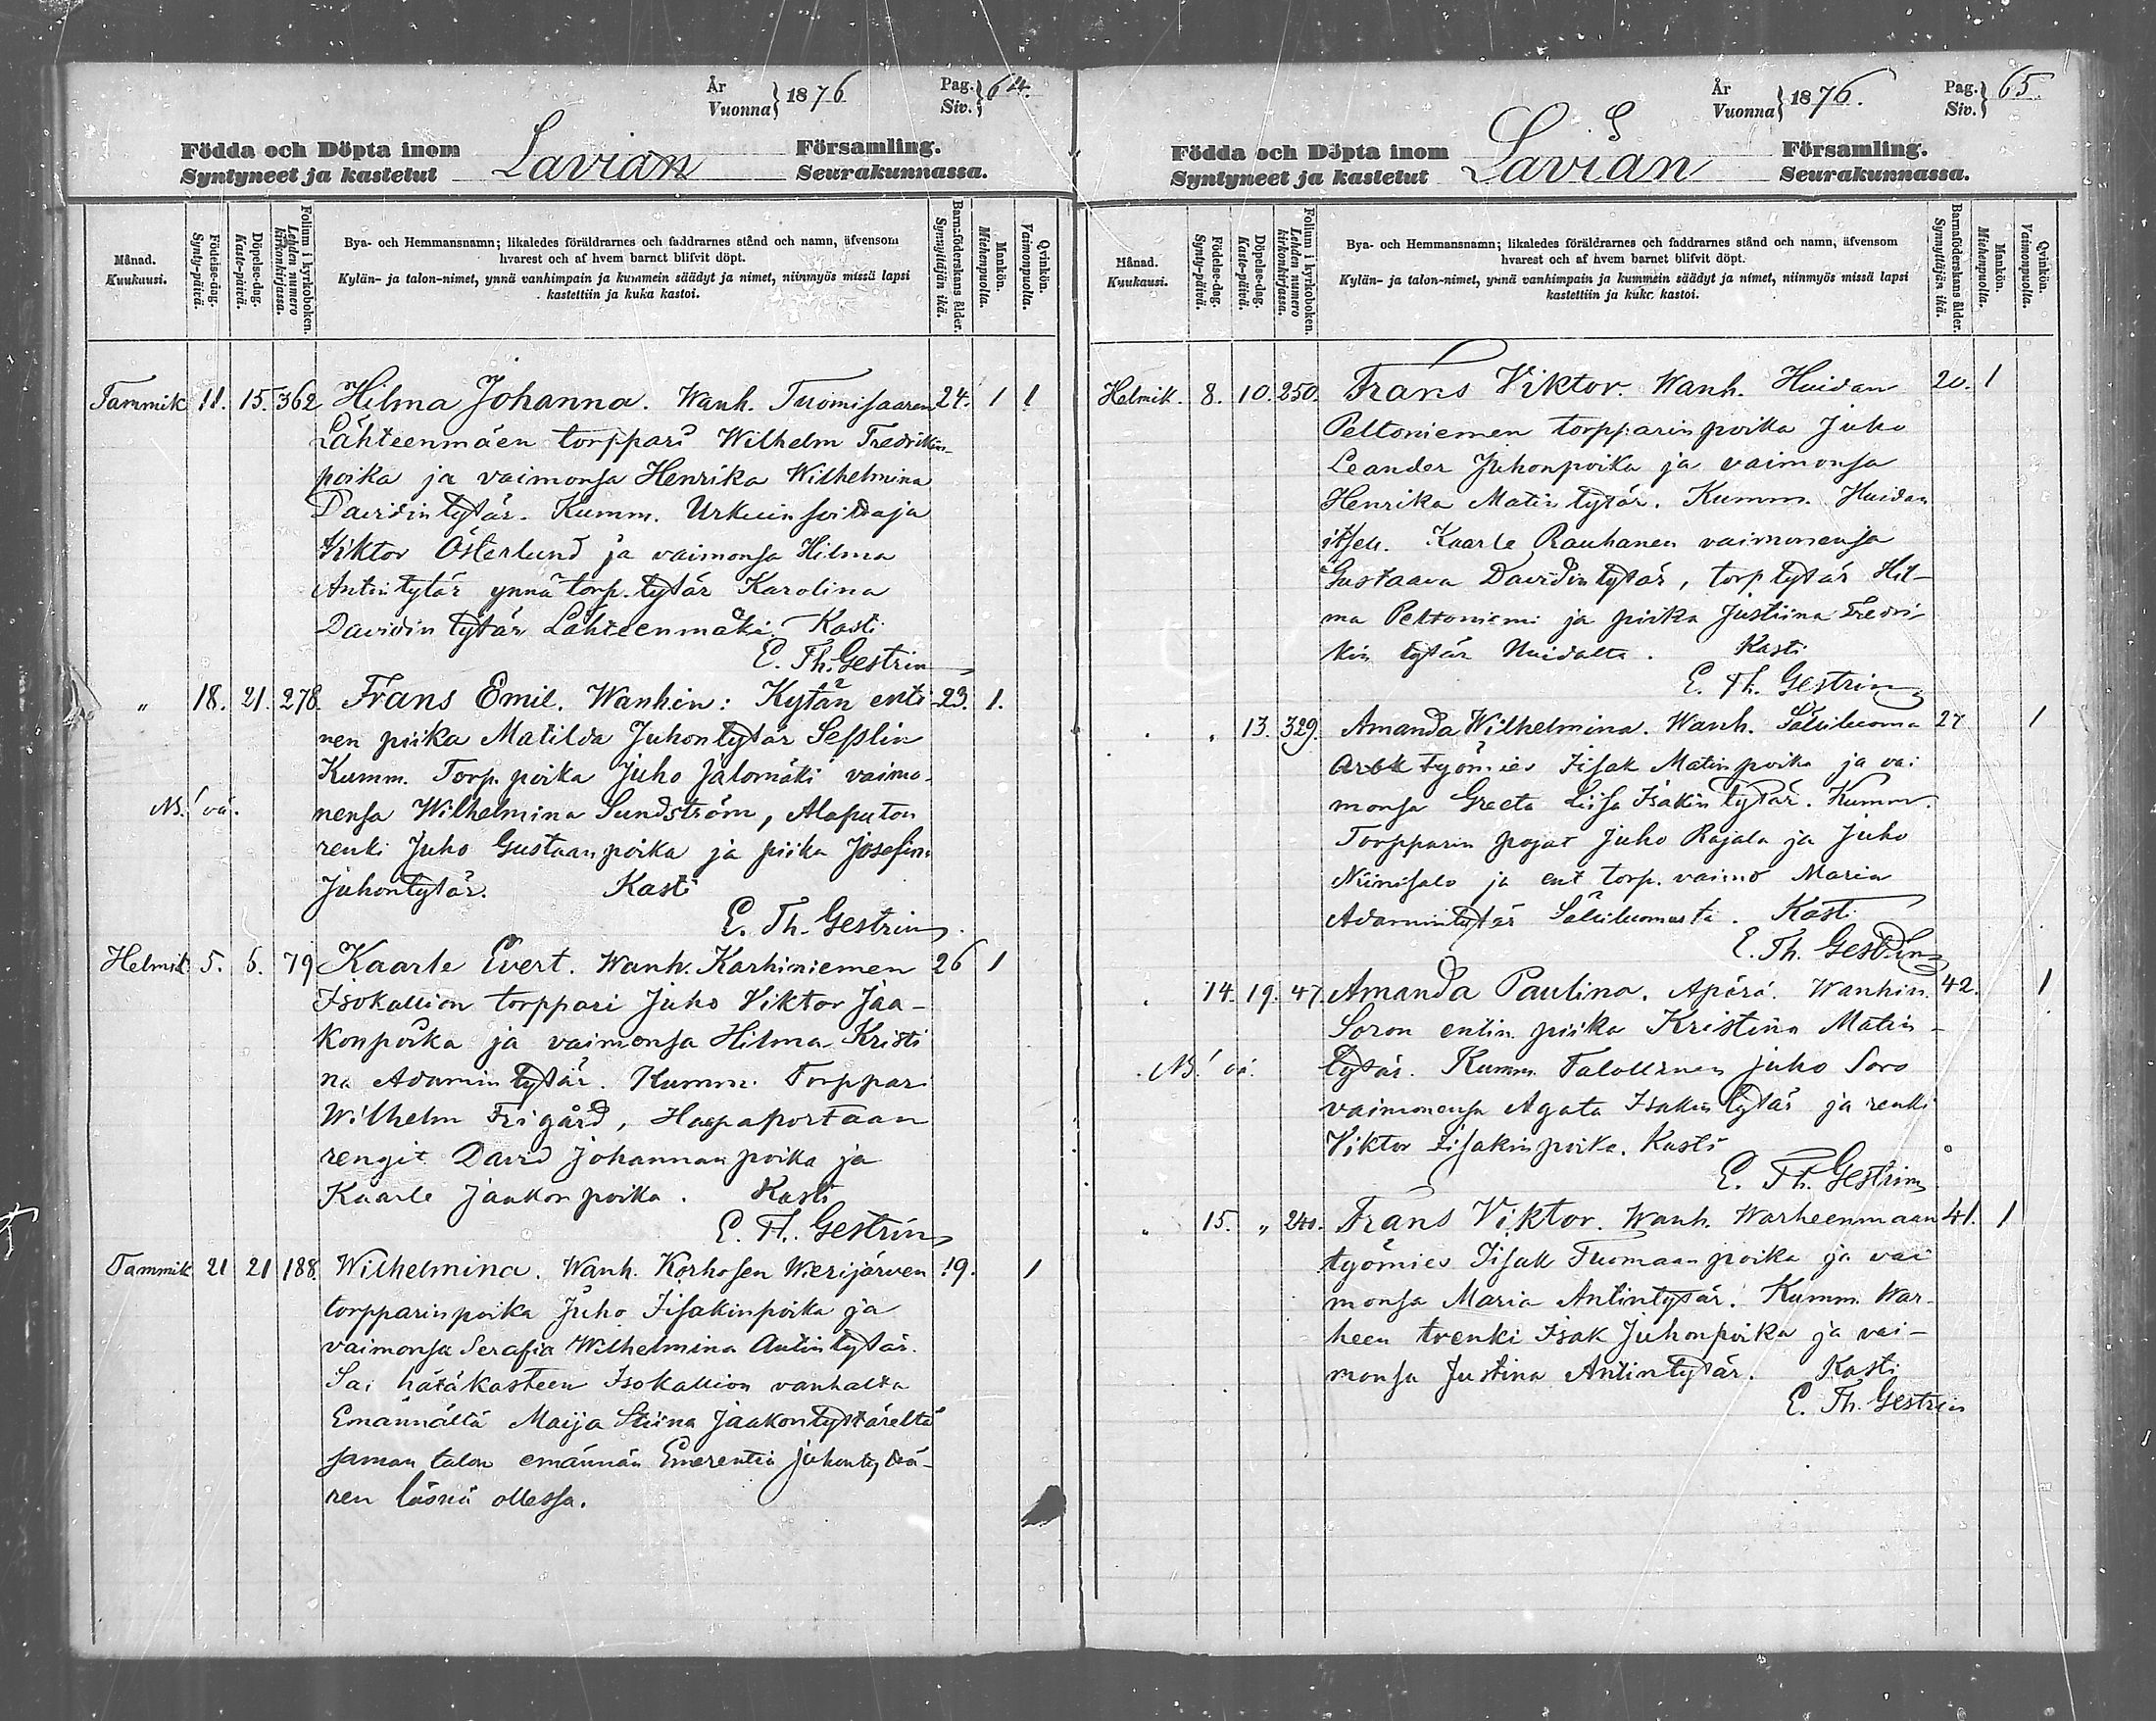 År
Vuonna } 1876
Pag.
Siv. } 64.
Födda och Döpta inom
Syntyneet ja kastetut
Lavian
Församling.
Seurakunnassa.
Månad.
Kuukausi.
Födelse-dag.
Synty-päivä.
Döpelse-dag.
Kaste-päivä.
Folium i kyrkoboken.
Lehden numero kirkonkirjassa.
Bya- och Hemmansnamn; likaledes föräldrarnes och faddrarnes stånd och namn, äfvensom
hvarest och af hvem barnet blifvit döpt.
Kylän- ja talon-nimet, ynnä vanhimpain ja kummein säädyt ja nimet, niinmyös missä lapsi
kastettiin ja kuka kastoi.
Barnaföderskans ålder.
Synnyttäjän ikä.
Mankön.
Miehenpuolta.
Qvinkön.
Vaimonpuolta.
Tammik 11. 15. 362 Hilma Johanna. Wanh. Tuomisaaren 24. 1 1
Lähteenmäen torppari Wilhelm Fredrikin
poika ja vaimonsa Henrika Wilhelmina
Davidin tytär. Kumm. Urkuin soittaja
Viktor Österlund ja vaimonsa Hilma
Antintytär ynnä torp. tytär Karolina
Davidin tytär Lähteenmäki. Kasti
E. Th. Gestrin
" 18. 21. 278. Frans Emil. Wanhin: Kytän enti- 23. 1.
nen piika Matilda Juhontytär Seßlin
Kumm. Torp. poika Juho Jalomäki vaimo-
NB! vä. nensa Wilhelmina Sundström, Alaputon
renki Juho Gustaanpoika ja piika Josefina
Juhontytär. Kasti
E. Th. Gestrin
Helmik 5. 6. 79 Kaarle Evert. Wanh. Karhiniemen 26 1
Isokallion torppari Juho Viktor Jaa-
konpoika ja vaimonsa Hilma Kristi
na Adamin tytär. Kumm. Torppari
Wilhelm Frigård, Haapaportaan
rengit David Johannan poika ja
Kaarle Jaakon poika. Kasti
E. Th. Gestrin
Tammik 21 21 188. Wilhelmina. Wanh. Korhosen Werijärven 19. 1
torpparinpoika Juho Iisakinpoika ja
vaimonsa Serafia Wilhelmina Antintytär.
Sai hätäkasteen Isokallion vanhalta
Emännältä Maija Stiina Jaakontyttäreltä
saman talon emännän Emerentia Juhontyttä-
ren läsnä ollessa.
År
Vuonna } 1876.
Pag.
Siv. } 65.
Födda och Döpta inom
Syntyneet ja kastetut
Lavian
Församling.
Seurakunnassa.
Månad.
Kuukausi.
Födelse-dag.
Synty-päivä.
Döpelse-dag.
Kaste-päivä.
Folium i kyrkoboken.
Lehden numero kirkonkirjassa.
Bya- och Hemmansnamn; likaledes föräldrarnes och faddrarnes stånd och namn, äfvensom
hvarest och af hvem barnet blifvit döpt.
Kylän- ja talon-nimet, ynnä vanhimpain ja kummein säädyt ja nimet, niinmyös missä lapsi
kastettiin ja kuka kastoi.
Barnaföderskans ålder.
Synnyttäjän ikä.
Mankön.
Miehenpuolta.
Qvinkön.
Vaimonpuolta.
Helmik. 8. 10. 250. Frans Viktor. Wanh. Huidan 20. 1
Peltoniemen torpparin poika Juho
Leander Juhonpoika ja vaimonsa
Henrika Matin tytär. Kumm. Huidan
itsell. Kaarle Rauhanen vaimonensa
Gustaava Davidin tytär, torp tytär Hil-
ma Peltoniemi ja piika Justiina Fredri-
kin tytär Huidalta. Kasti
E. Th. Gestrin
" " 13. 329. Amanda Wilhelmina. Wanh. Sälsiluoma 27 1
Työmies Iisak Matin poika ja vai
monsa Greeta Liisa Isakin tytär. Kumm.
Torpparin pojat Juho Rajala ja Juho
Niinisalo ja ent torp. vaimo Maria
Adamintytär Sälsiluomasta. Kasti
E. Th. Gestrin
" 14. 19. 47. Amanda Paulina. Äpärä. Wanhin. 42. 1
Soron entin. piika Kristina Matin-
NB! vä. tytär. Kumm. Talollinen Juho Soro
vaimonensa Agata Isakin tytär ja renki
Viktor Iisakin poika. Kasti
E. Th. Gestrin
" 15. " 240. Frans Viktor. Wanh. Warheenmaan 41. 1
työmies Iisak Tuomaan poika ja vai
monsa Maria Antintytär. Kumm. War-
heen trenki Isak Juhonpoika ja vai-
monsa Justina Antintytär. Kasti
E. Th. Gestrin